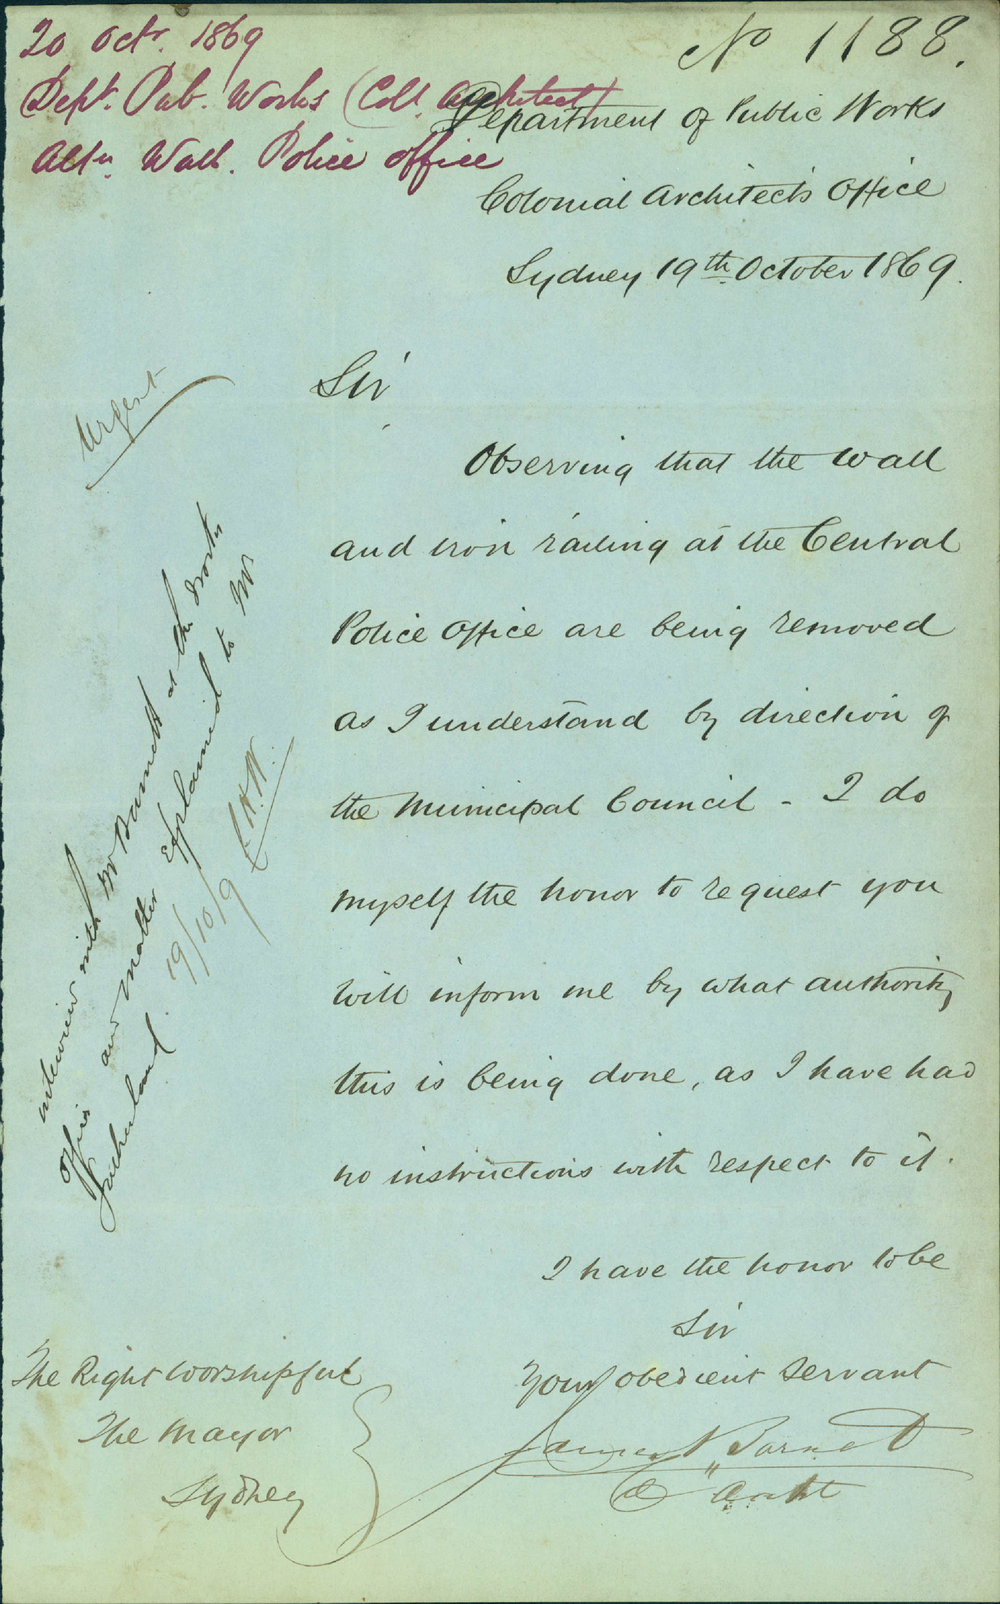 20 Octr. 1869
Dept. Pub. Works (Coll. Architect)
Altn. Wall. Police office
No 1188.
Department of Public Works
Colonial Architect's Office
Sydney 19th October 1869.
Urgent
Sir
Observing that the wall
and iron railing at the Central
Police Office are being removed
as I understand by direction of
the Municipal Council - I do
myself the honor to request you
will inform me by what authority
this is being done, as I have had
no instructions with respect to it.
I have the honor to be
Sir
Your obedient servant
James Barnet
C Archt
The Right Worshipful
The Mayor
Sydney
interview with Mr Barnett at the Works
Office and matter explained to Mr
Sutherland. 19/10/9 C.H.W.